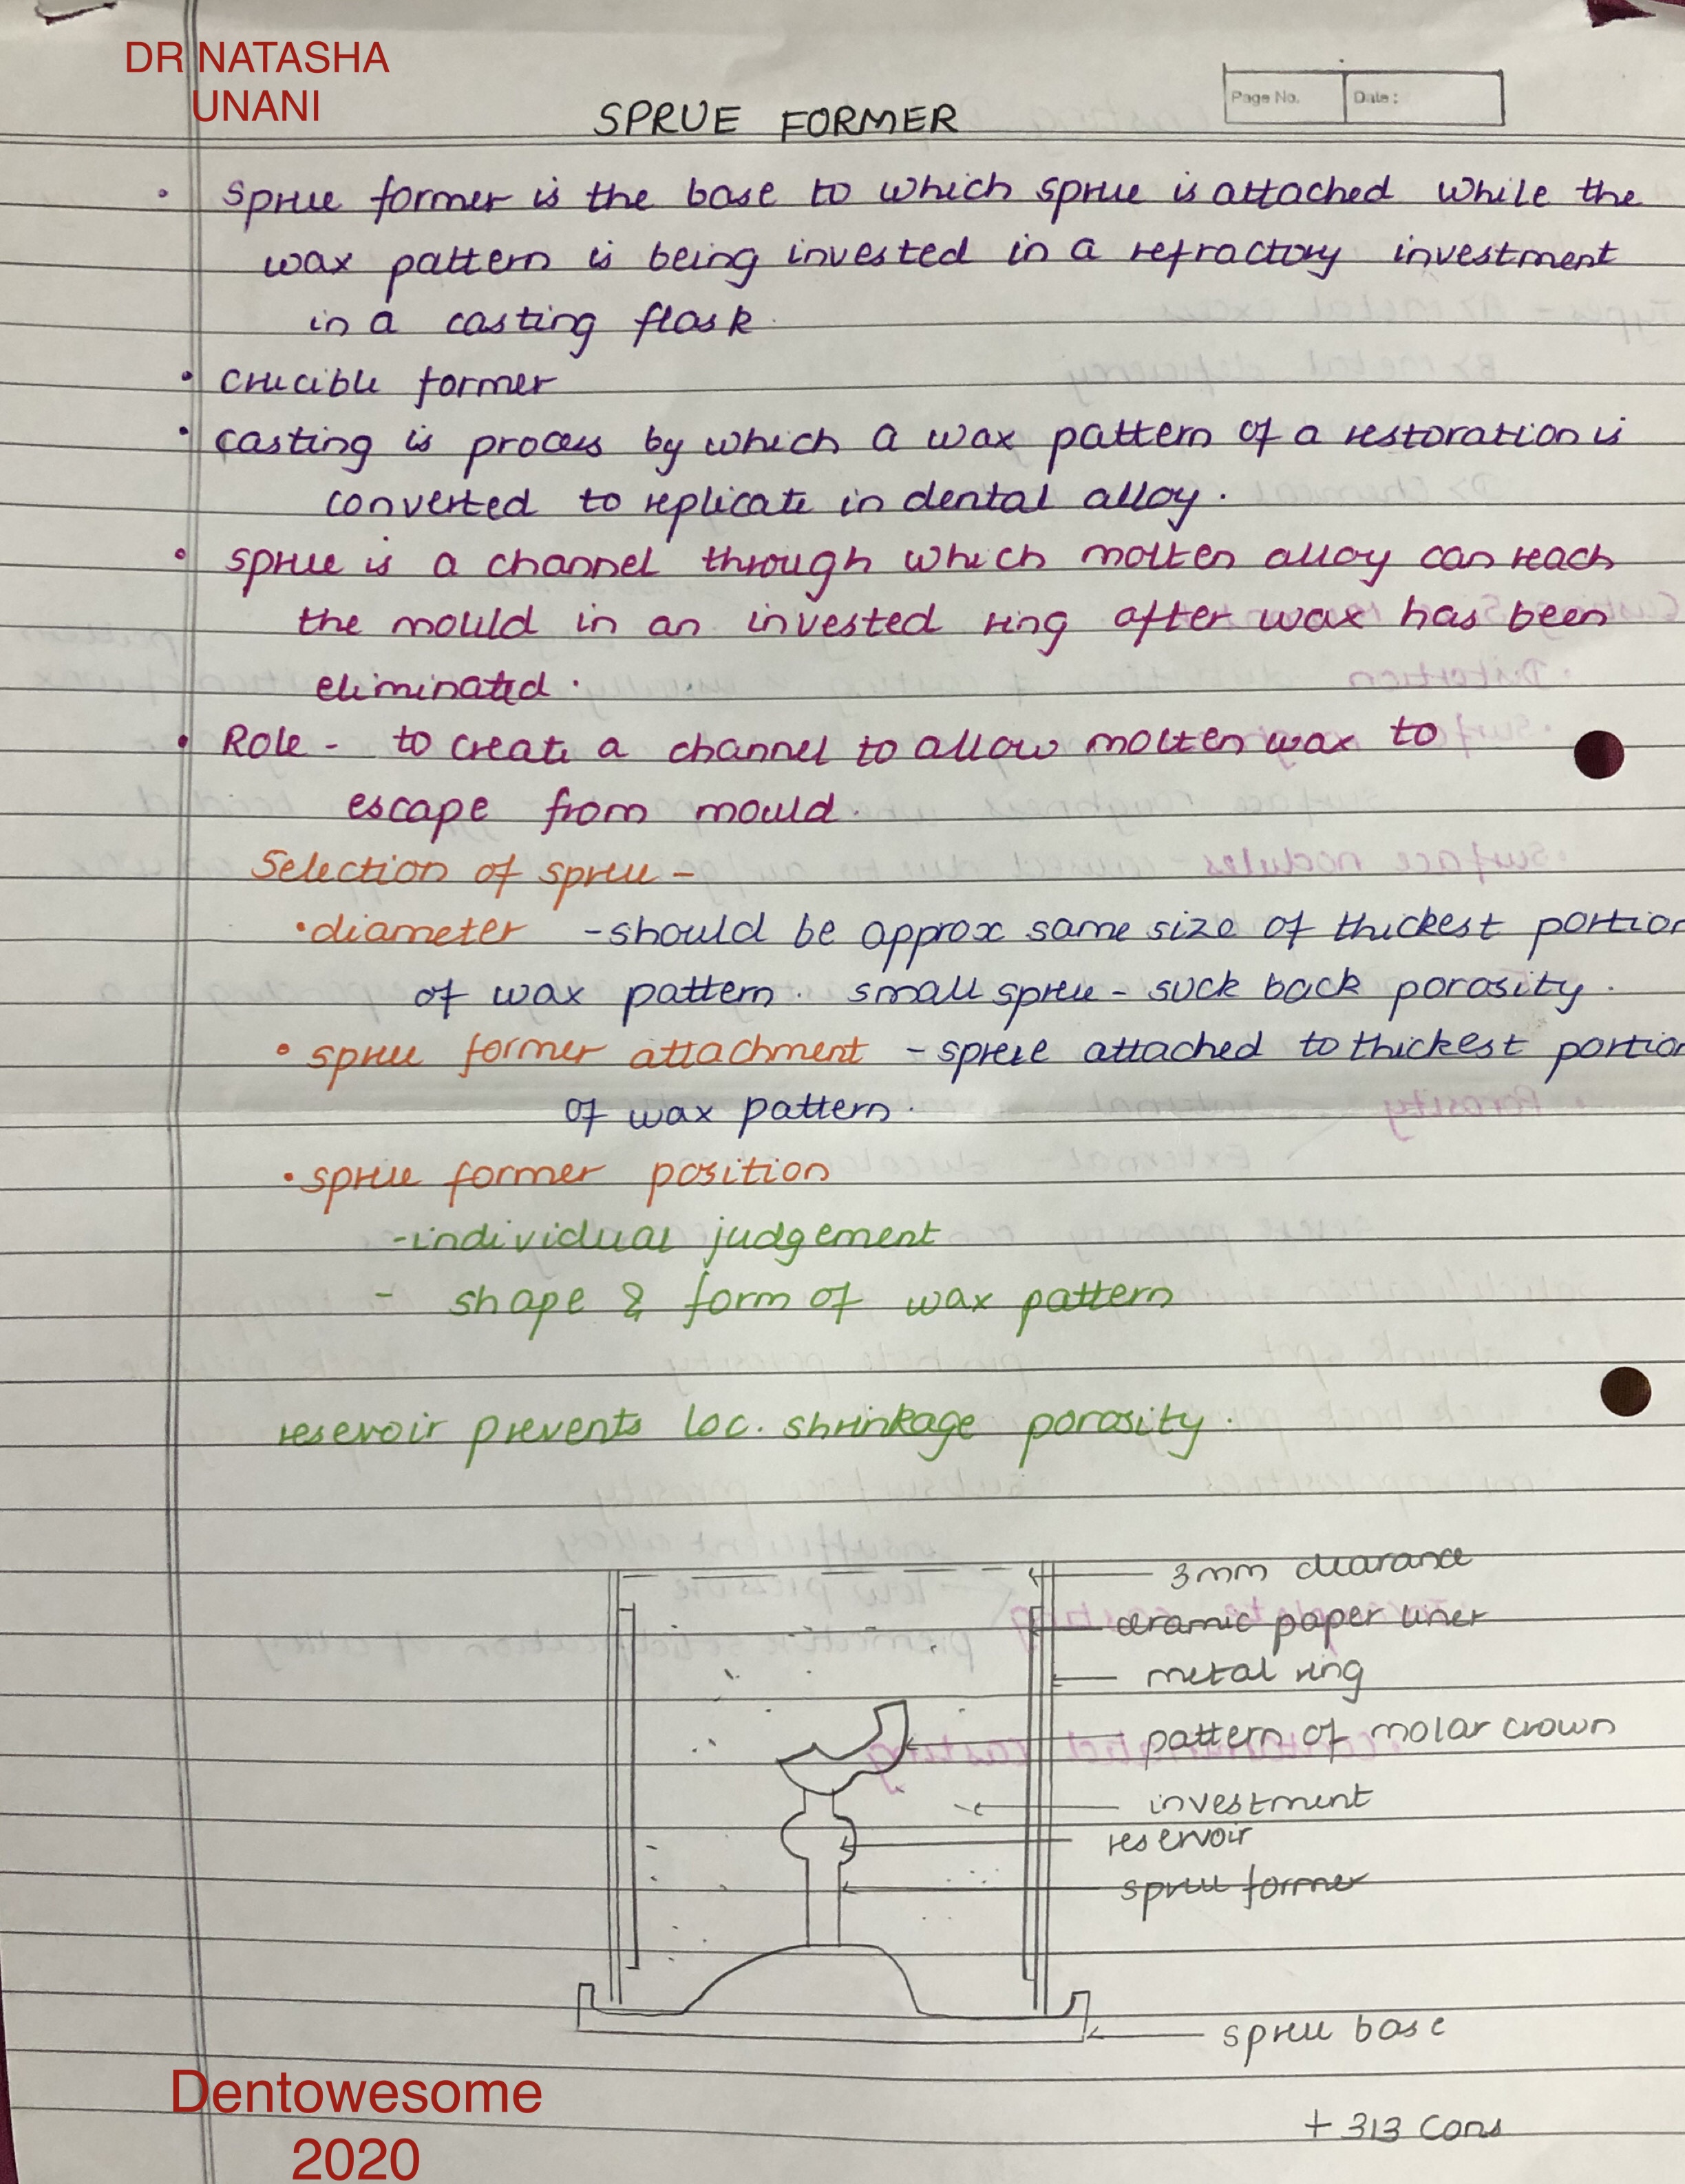 DR NATASHA
UNANI
Page No.
Date :
SPRUE FORMER
• Sprue former is the base to which sprue is attached while the
wax pattern is being invested in a refractory investment
in a casting flask.
• Crucible former
• casting is process by which a wax pattern of a restoration is
converted to replicate in dental alloy.
• sprue is a channel through which molten alloy can reach
the mould in an invested ring after wax has been
eliminated.
• Role - to create a channel to allow molten wax to
escape from mould.
Selection of sprue -
• diameter - should be approx same size of thickest portion
of wax pattern. small sprue - suck back porosity.
• sprue former attachment - sprue attached to thickest portion
of wax pattern.
• sprue former position
- individual judgement
- shape & form of wax pattern
reservoir prevents loc. shrinkage porosity.
3mm clearance
ceramic paper liner
metal ring
pattern of molar crown
investment
reservoir
sprue former
sprue base
Dentowesome
2020
+ 313 Cons